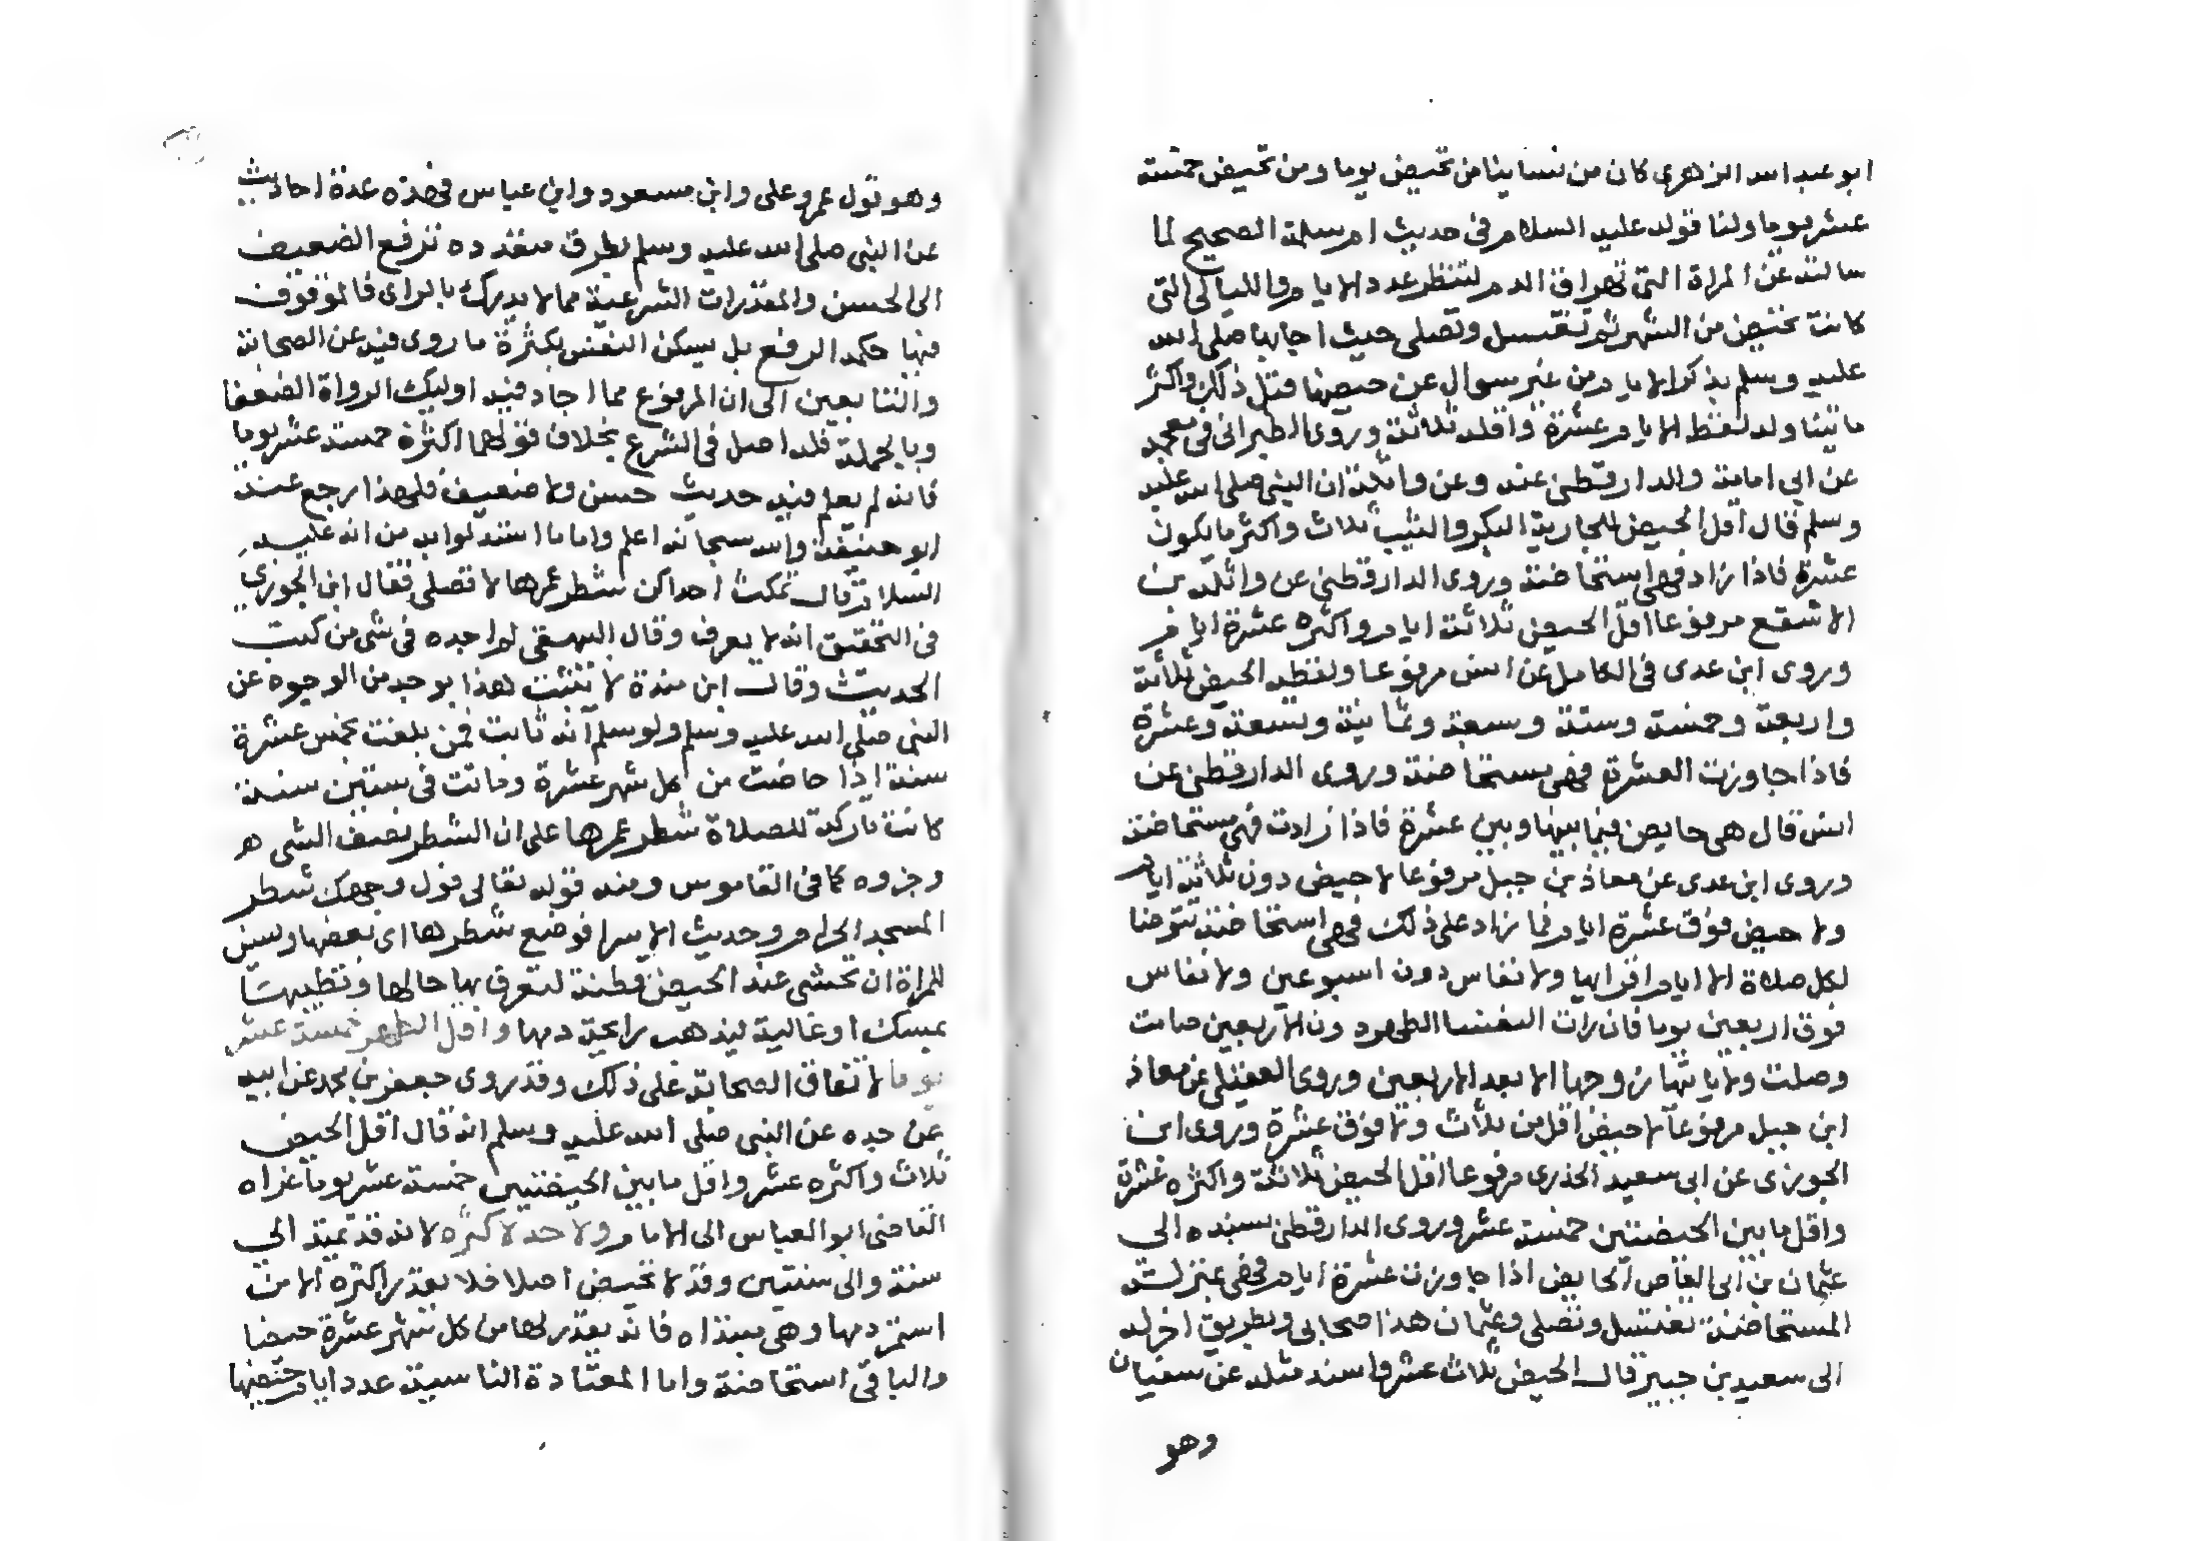 ابو عبد الله الزهري كان من نسائنا من تحيض يوما ومن تحيض خمسة
عشر يوما ولنا قوله عليه السلام في حديث ام سلمة الصحيح لما
سالته عن المراة التي تهراق الدم لتنظر عدد الايام والليالي التي
كانت تحيض من الشهر ثم تغتسل وتصلي حيث اجابها صلى الله
عليه وسلم بذكر الايام من غير سوال عن حيضها قبل ذلك واكثر
ما يتناوله لفظ الايام عشرة واقله ثلاثة وروى الطبراني في معجمه
عن ابي امامة والدارقطني عنه وعن واثلة ان النبي صلى الله عليه
وسلم قال اقل الحيض للجارية البكر والثيب ثلاث واكثر ما يكون
عشرة فاذا زاد فهي استحاضة وروى الدارقطني عن واثلة بن
الاسقع مرفوعا اقل الحيض ثلاثة ايام واكثره عشرة ايام
وروى ابن عدى في الكامل عن انس مرفوعا ولفظه الحيض ثلاثة
واربعة وخمسة وستة وسبعة وثمانية وتسعة وعشرة
فاذا جاوزت العشرة فهي مستحاضة وروى الدارقطني عن
انس قال هي حايض فيما بينها وبين عشرة فاذا زادت فهي مستحاضة
وروى ابن عدى عن معاذ بن جبل مرفوعا لا حيض دون ثلاثة ايام
ولا حيض فوق عشرة ايام فما زاد على ذلك فهي استحاضة تتوضا
لكل صلاة الا ايام اقرايها ولا نفاس دون اسبوعين ولا نفاس
فوق اربعين يوما فان رات النفسا الطهر دون الاربعين صامت
وصلت ولا ياتيها زوجها الا بعد الاربعين وروى العقيلي عن معاذ
ابن جبل مرفوعا لا حيض اقل من ثلاث ولا فوق عشرة وروى ابن
الجوزى عن ابي سعيد الخدرى مرفوعا اقل الحيض ثلاثة واكثره عشرة
واقل ما بين الحيضتين خمسة عشر وروى الدارقطني بسنده الى
عثمان بن ابي العاص الحايض اذا جاوزت عشرة ايام فهي بمنزلة
المستحاضة تغتسل وتصلي وعثمان هذا صحابي وبطريق اخر له
الى سعيد بن جبير قال الحيض ثلاث عشر واسند مثله عن سفيان
وهو
وهو قول عمر وعلي وابن مسعود وابن عباس فهذه عدة احاديث
عن النبي صلى الله عليه وسلم بطرق متعدده ترفع الضعيف
الى الحسن والمقدرات الشرعية مما لا يدرك بالراى فالموقوف
فيها حكمه الرفع بل يسكن النفس بكثرة ما روى فيه عن الصحابة
والتابعين الى ان المرفوع مما اجاد فيه اوليك الرواة الضعفا
وبالجملة فله اصل في الشرع بخلاف قولهما اكثره خمسة عشر يوما
فانه لم يعلم فيه حديث حسن ولا ضعيف فلهذا رجع عنه
ابو حنيفة والله سبحانه اعلم واما ما استدلوا به من انه عليه
السلام قال تمكث احداكن شطر عمرها لا تصلي فقال ابن الجوزي
في التحقيق انه لا يعرف وقال البيهقي لم اجده في شى من كتب
الحديث وقال ابن مندة لا يثبت هذا بوجه من الوجوه عن
النبي صلى الله عليه وسلم ولو سلم انه ثابت فمن بلغت بخمس عشرة
سنة اذا حاضت من كل شهر عشرة وماتت في ستين سنة
كانت تاركة للصلاة شطر عمرها على ان الشطر نصف الشى هو
وجزوه كما في القاموس ومنه قوله تعالى فول وجهك شطر
المسجد الحرام وحديث الاسرا فوضع شطرها اى بعضها ويسن
للمراة ان تحتشي عند الحيض قطنة لتعرف بها حالها وتطيبها
بمسك او غالية ليذهب رايحة دمها واقل الطهر خمسة عشر
يوما لاتفاق الصحابة على ذلك وقد روى جعفر بن محمد عن ابيه
عن جده عن النبي صلى الله عليه وسلم انه قال اقل الحيض
ثلاث واكثره عشر واقل ما بين الحيضتين خمسة عشر يوما عزاه
القاضي ابو العباس الى الامام ولا حد لاكثره لانه قد يمتد الى
سنة والى سنتين وقد لا تحيض اصلا فلا يقدر اكثره الا من
استمر دمها وهي مبتداه فانه يقدر لها من كل شهر عشرة حيضا
والباقي استحاضة واما المعتادة الناسية عدد ايام حيضها